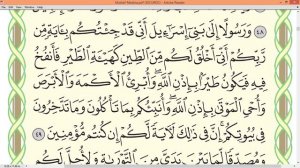 Mushaf Madina.pdf (SECURED) - Adobe Reader
٤٨ وَرَسُولًا إِلَىٰ بَنِىٓ إِسْرَٰٓءِيلَ أَنِّى قَدْ جِئْتُكُم بِـَٔايَةٍ مِّن
رَّبِّكُمْ أَنِّىٓ أَخْلُقُ لَكُم مِّنَ ٱلطِّينِ كَهَيْـَٔةِ ٱلطَّيْرِ فَأَنفُخُ
فِيهِ فَيَكُونُ طَيْرًۢا بِإِذْنِ ٱللَّهِ ۖ وَأُبْرِئُ ٱلْأَكْمَهَ وَٱلْأَبْرَصَ
وَأُحْىِ ٱلْمَوْتَىٰ بِإِذْنِ ٱللَّهِ ۖ وَأُنَبِّئُكُم بِمَا تَأْكُلُونَ وَمَا تَدَّخِرُونَ
فِى بُيُوتِكُمْ ۚ إِنَّ فِى ذَٰلِكَ لَـَٔايَةً لَّكُمْ إِن كُنتُم مُّؤْمِنِينَ ٤٩
وَمُصَدِّقًا لِّمَا بَيْنَ يَدَىَّ مِنَ ٱلتَّوْرَىٰةِ وَلِأُحِلَّ لَكُم